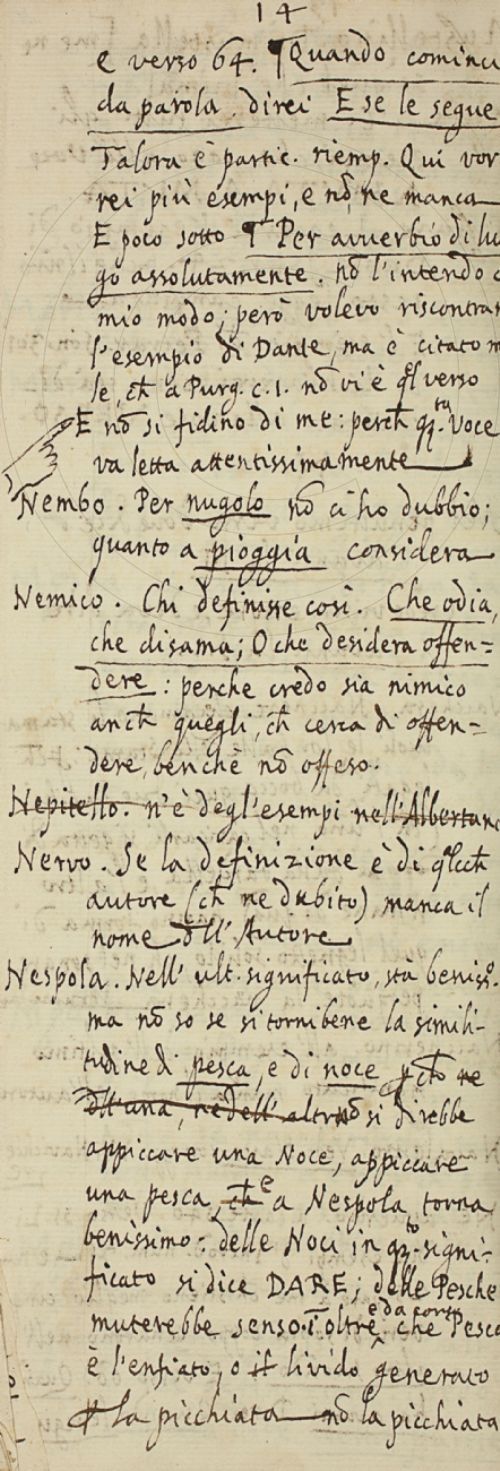 14
e verso 64. ¶ Quando cominci
da parola. direi E se le segue
Talora è partic. riemp. Qui vor
rei più esempi, e nõ ne manca
E poco sotto ¶ Per avverbio di lu
go assolutamente. nõ l'intendo
mio modo; però volevo riscontrar
l'esempio di Dante, ma è citato m
le, ch̃ a Purg. c. 1. nõ vi è ql̃ verso
E nõ si fidino di me: perch̃ q̃sta Voce
va letta attentissimamente
Nembo. Per nugolo nõ ci ho dubbio;
quanto a pioggia considera
Nemico. Chi definisse così. Che odia,
che disama; O che desidera offen=
dere: perche credo sia nimico
anch̃ quegli, ch̃ cerca di offen-
dere, benchè nõ offeso.
Nepitello. n'è degl'esempi nell'Albertan
Nervo. Se la definizione è di ql̃ch̃
autore (ch̃ ne dubito) manca il
nome dll' Autore
Nespola. Nell' ult. significato, stà beniss.o
ma nõ so se si torni bene la simili-
tudine di pesca, e di noce, ne
dll'una, nè dell'altra nõ si direbbe
appiccare una Noce, appiccare
una pesca, ch̃ e a Nespola torna
benissimo: delle Noci in q̃sto signi-
ficato si dice DARE; delle Pesche
muterebbe senso. Ĩoltre che Pesca
e da corso
è l'enfiato, o il livido generato
la picchiata nõ la picchiata